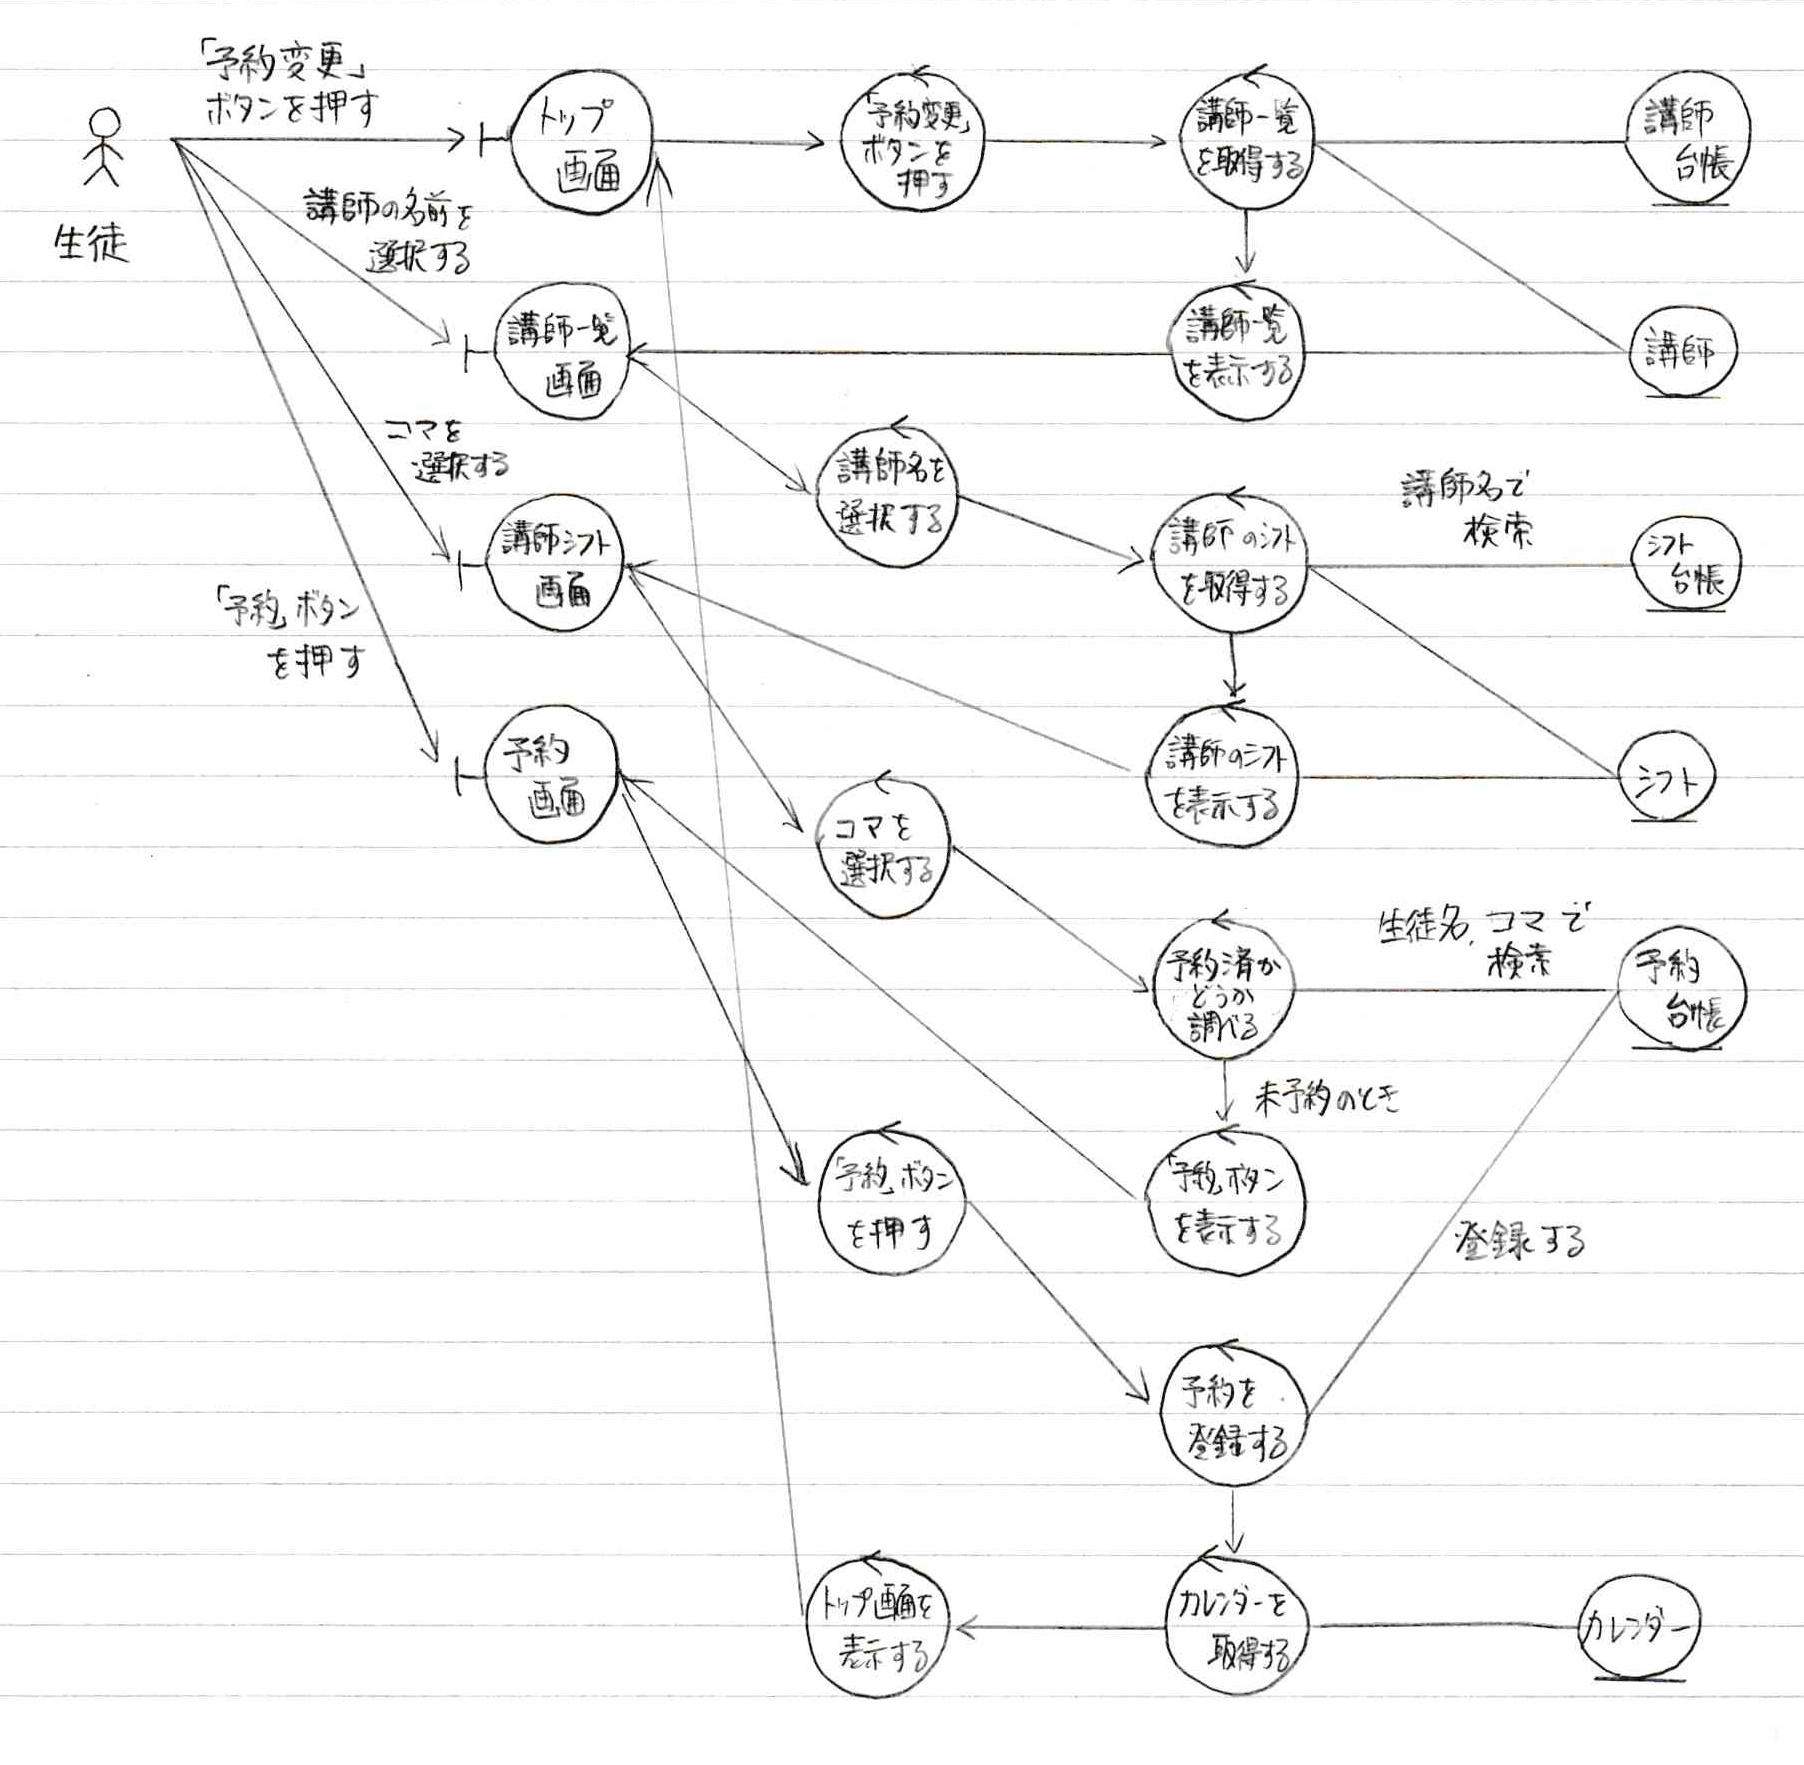 「予約変更」
ボタンを押す
生徒
トップ
画面
「予約変更」
ボタンを
押す
講師一覧
を取得する
講師
台帳
講師の名前を
選択する
講師一覧
画面
講師一覧
を表示する
講師
コマを
選択する
講師名を
選択する
講師シフト
画面
講師のシフト
を取得する
講師名で
検索
シフト
台帳
「予約」ボタン
を押す
予約
画面
講師のシフト
を表示する
シフト
コマを
選択する
予約済か
どうか
調べる
生徒名、コマで
検索
予約
台帳
未予約のとき
「予約」ボタン
を押す
「予約」ボタン
を表示する
登録する
予約を
登録する
トップ画面を
表示する
カレンダーを
取得する
カレンダー